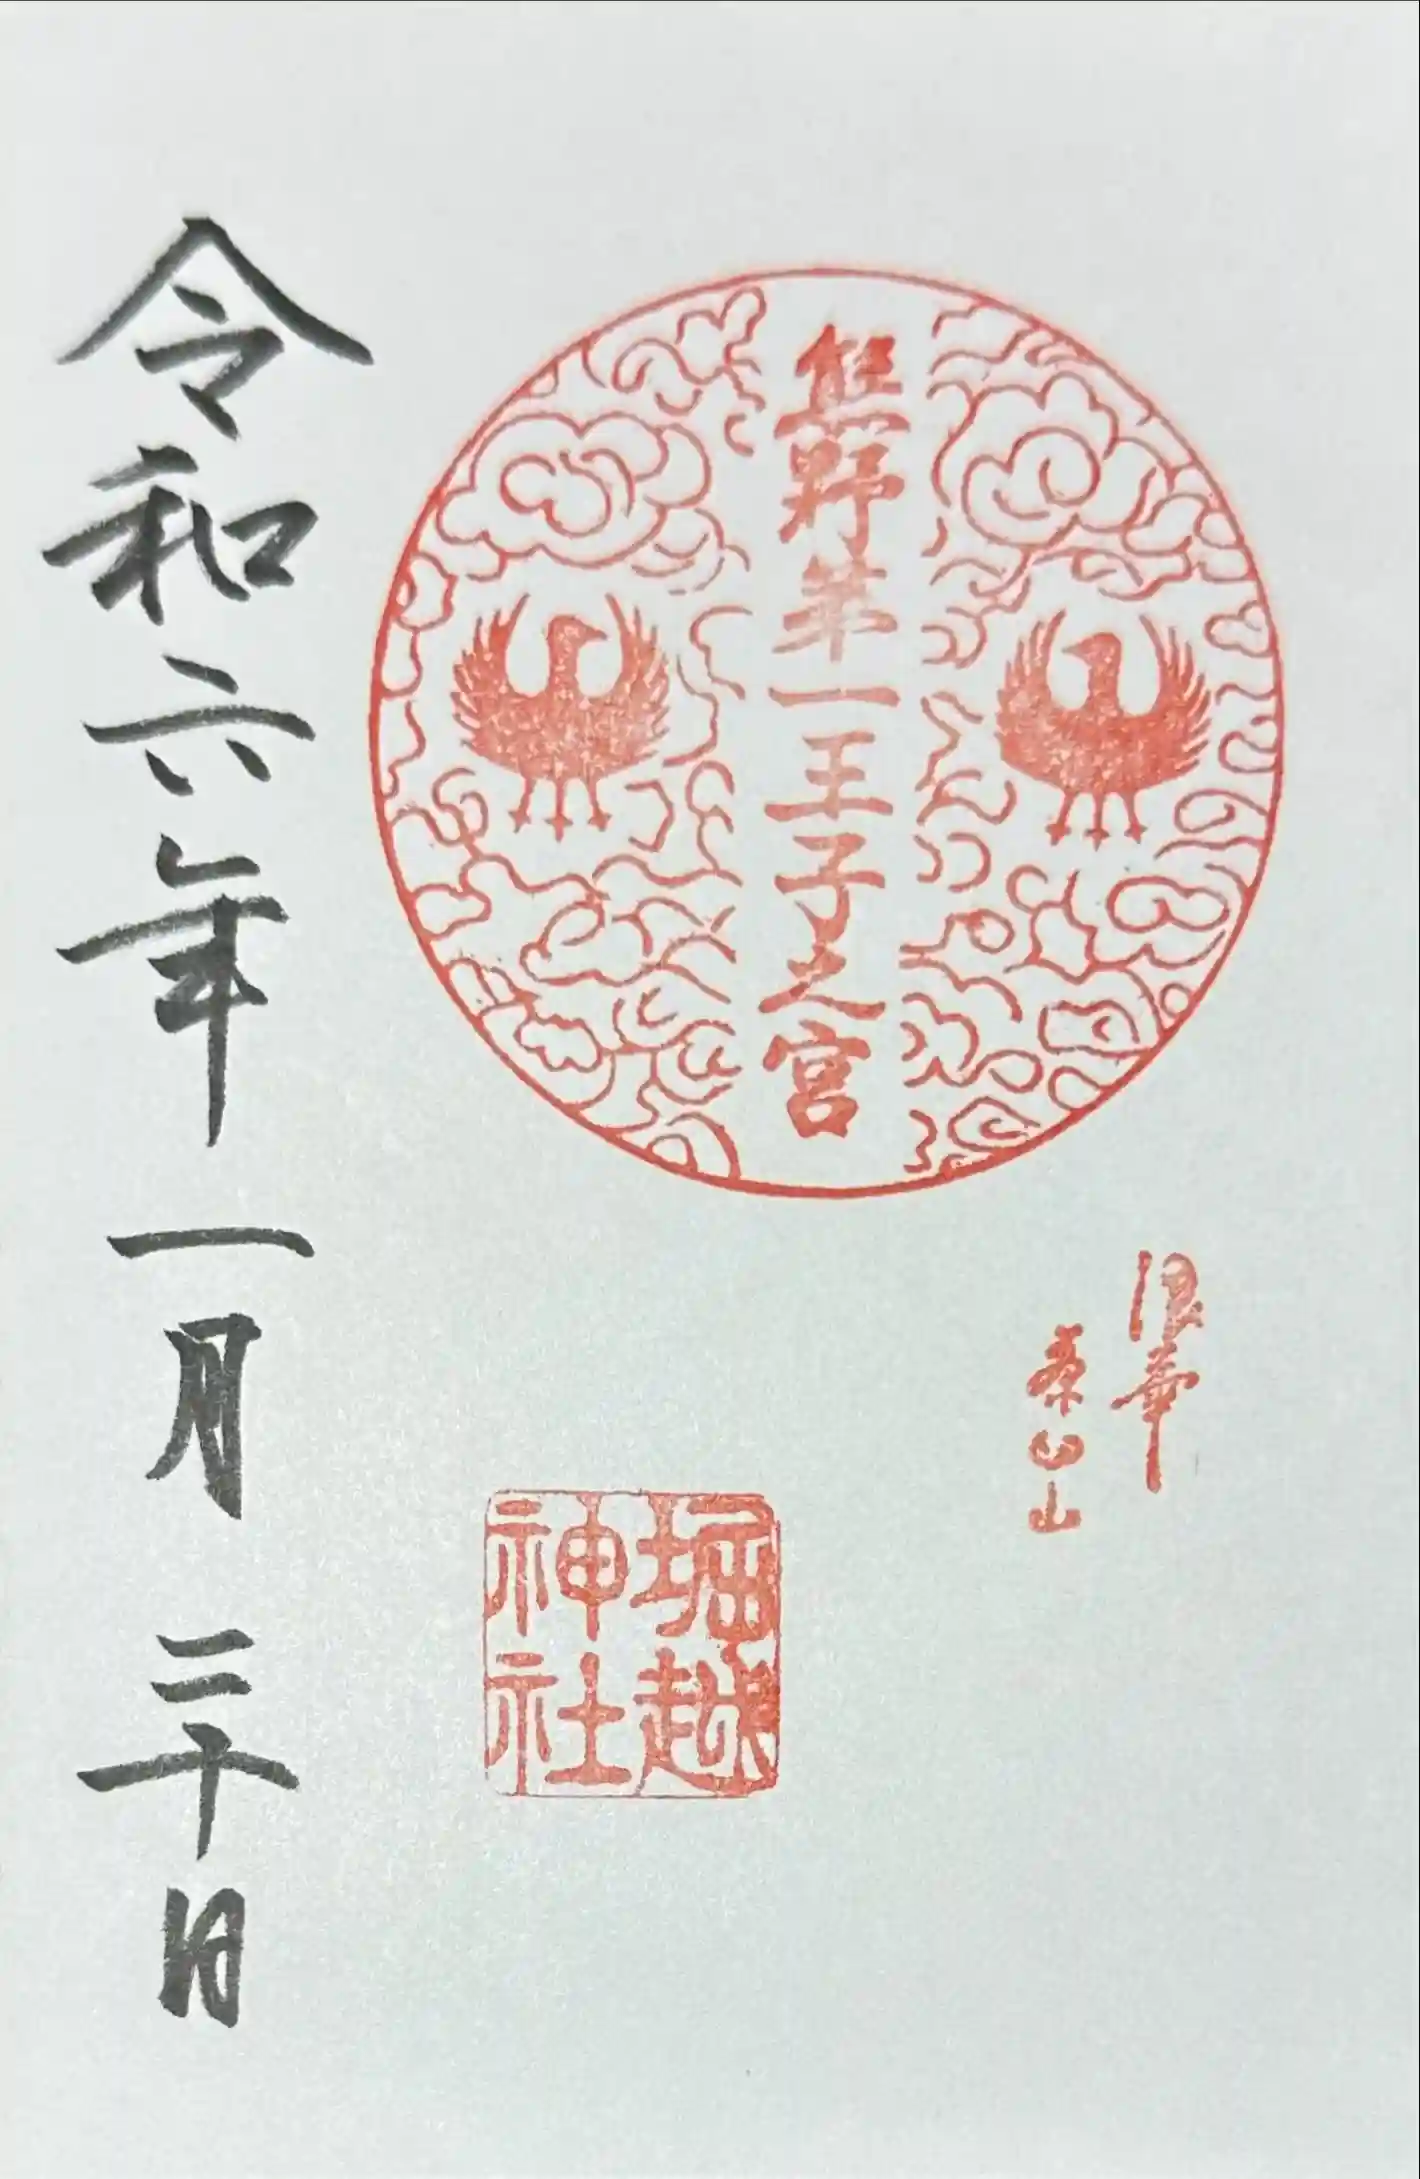 熊野第一王子之宮
浪華
茶臼山
堀越
神社
令和六年一月三十日